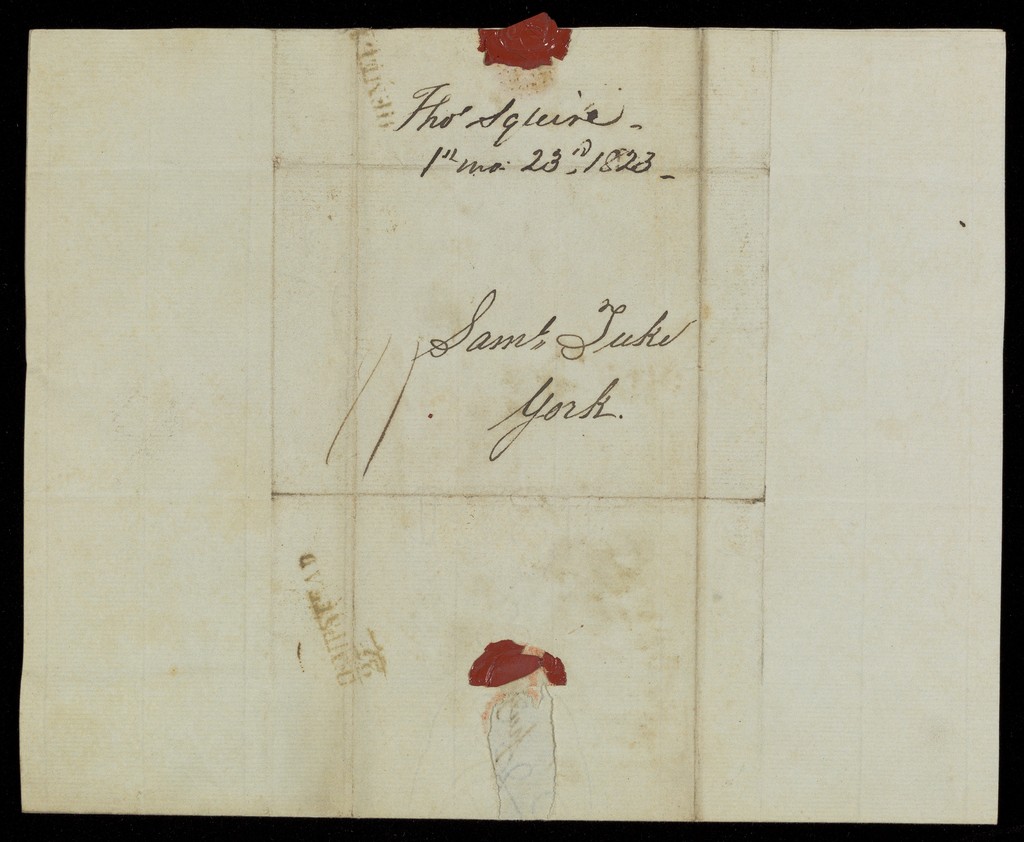 Thos Squire -
1st mo. 23rd 1823 -
Saml. Tuke
York.